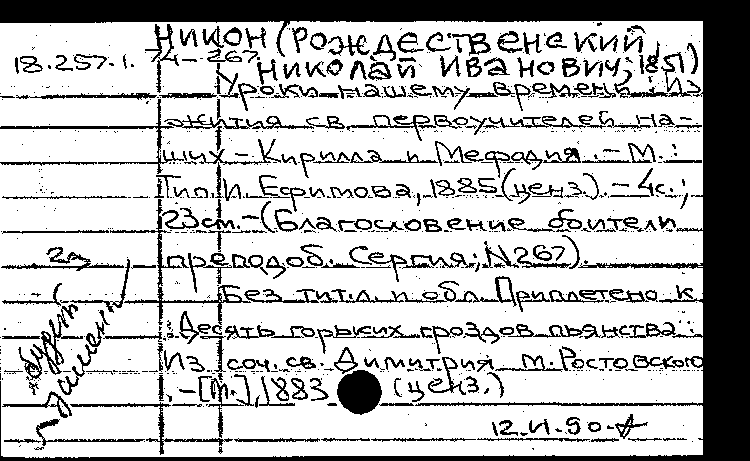 НИКОН (РОЖДЕСТВЕНСКИЙ,
18.257.1. 74-267 НИКОЛАЙ ИВАНОВИЧ; 1851)
Уроки нашему времени: Из
жития св. первоучителей на-
ших - Кирилла и Мефодия. - М.:
Тип. И. Ефимова, 1885 (ценз.). - 4с.;
23см. - (Благословение обители
преподоб. Сергия; N267).
Без тит.л. и обл. Приплетено к
: Десять горьких гроздов пьянства:
Из соч. св. Димитрия м. Ростовского
. - [М.], 1883 (ценз.)
12.VI.90